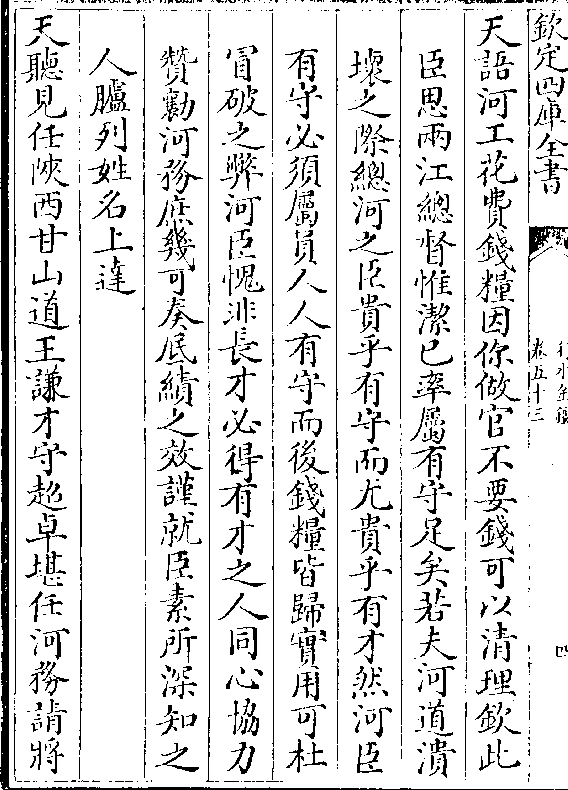 欽定四庫全書
行水金鑑
卷五十三
四
天語河工花費錢糧因你做官不要錢可以清理欽此
臣思兩江總督惟潔已率屬有守足矣若夫河道潰
壞之際總河之臣貴乎有守而尤貴乎有才然河臣
有守必須屬員人人有守而後錢糧皆歸實用可杜
冒破之弊河臣愧非長才必得有才之人同心協力
贊勷河務庶幾可奏底績之效謹就臣素所深知之
人臚列姓名上達
天聽見任陝西甘山道王謙才守超卓堪任河務請將